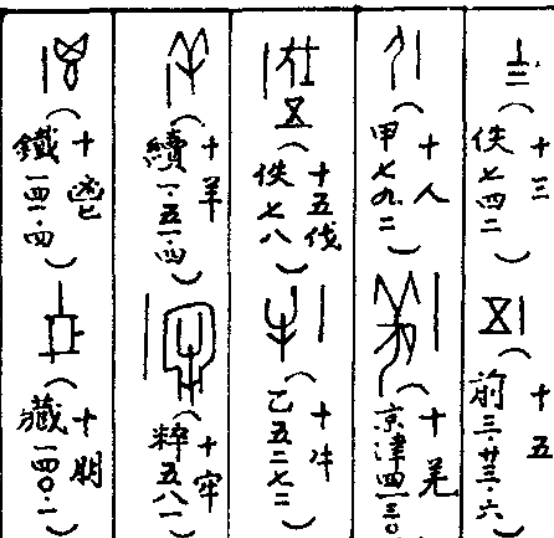 十三
（佚七四二）
十五
（前三·廿三·六）
十人
（甲七九二）
十羌
（京津四一三〇
十五伐
（佚七八）
十牛
（乙五二七二）
十羊
（續一·五一·四）
十牢
（粹五八一）
十鬯
（鐵一四二·四）
十朋
（藏一四〇·二）